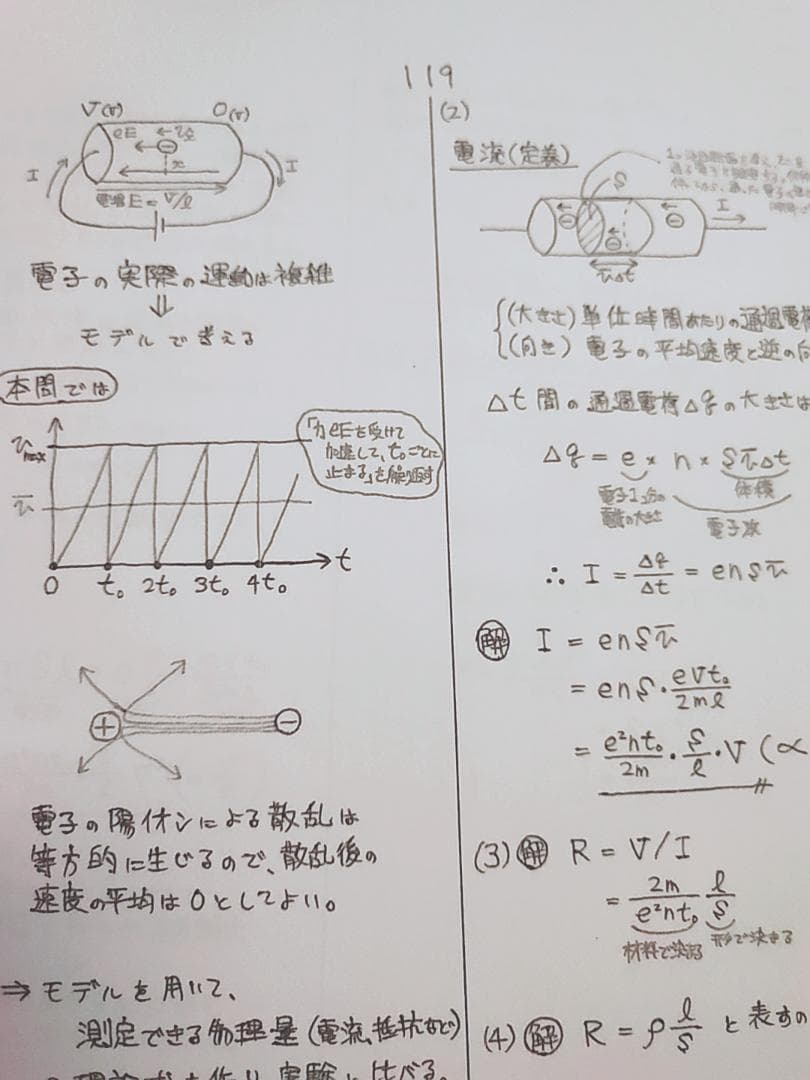 119
V(V)
0(V)
eE
I
x
I
電場E=V/l
電子の実際の運動は複雑
⇓
モデルで考える
本問では
v max
v̄
「力eEを受けて
加速して、t₀ごとに
止まる」を繰り返す
t
0 t₀ 2t₀ 3t₀ 4t₀
⊕ ⊖
電子の陽イオンによる散乱は
等方的に生じるので、散乱後の
速度の平均は0としてよい。
⇒ モデルを用いて、
測定できる物理量(電流、抵抗など)
(2)
電流(定義)
S
I
v̄Δt
(大きさ) 単位時間あたりの通過電
(向き) 電子の平均速度と逆の向
Δt間の通過電荷Δqの大きさは
Δq = e × n × Sv̄Δt
電子1コ分の
電荷の大きさ
体積
電子数
∴ I = Δq/Δt = enSv̄
解 I = enSv̄
= enS・eVt₀/2ml
= e²nt₀/2m・S/l・V (∝
(3) 解 R = V/I
= 2m/e²nt₀ l/S
材料で決まる 形で決まる
(4) 解 R = ρ l/S と表すの